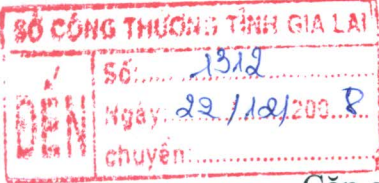 SỞ CÔNG THƯƠNG TỈNH GIA LAI
ĐẾN
Số:.....1312
Ngày: 22/12/2008
chuyển:
Căn